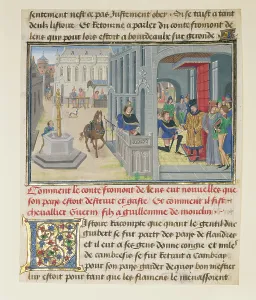 sentement nest ce pas Justement ober. Si se taist a tant
deulx listoire. Et Retourne a parler du conte fromont de
lens qui pour lors estoit a bourdeaulx sus gironde
Comment le conte fromont de lens eut nouuelles que
son pays estoit destruit et gaste. Et comment il fist
cheuallier Guerin filz a guillemme de monclin
Istoire racompte que quant le gentil duc
guibert se fut party des pays de flandres
et il eut a ses gens donne congie et mile
de cambresis se fut Retrait a Cambray
pour son pays garder de quoy bon mestier
leur estoit pour tant que les flamens le menassoient